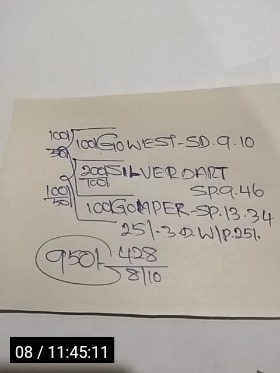 100/ 100 GO WEST-SD.9.10
50/
200 SILVER DART
100/
SP.9.46
100/ 100 GOMPER-SP.13.34
50/
25/-3D.W/P.25/.
950/- 428
8/10
08 / 11:45:11